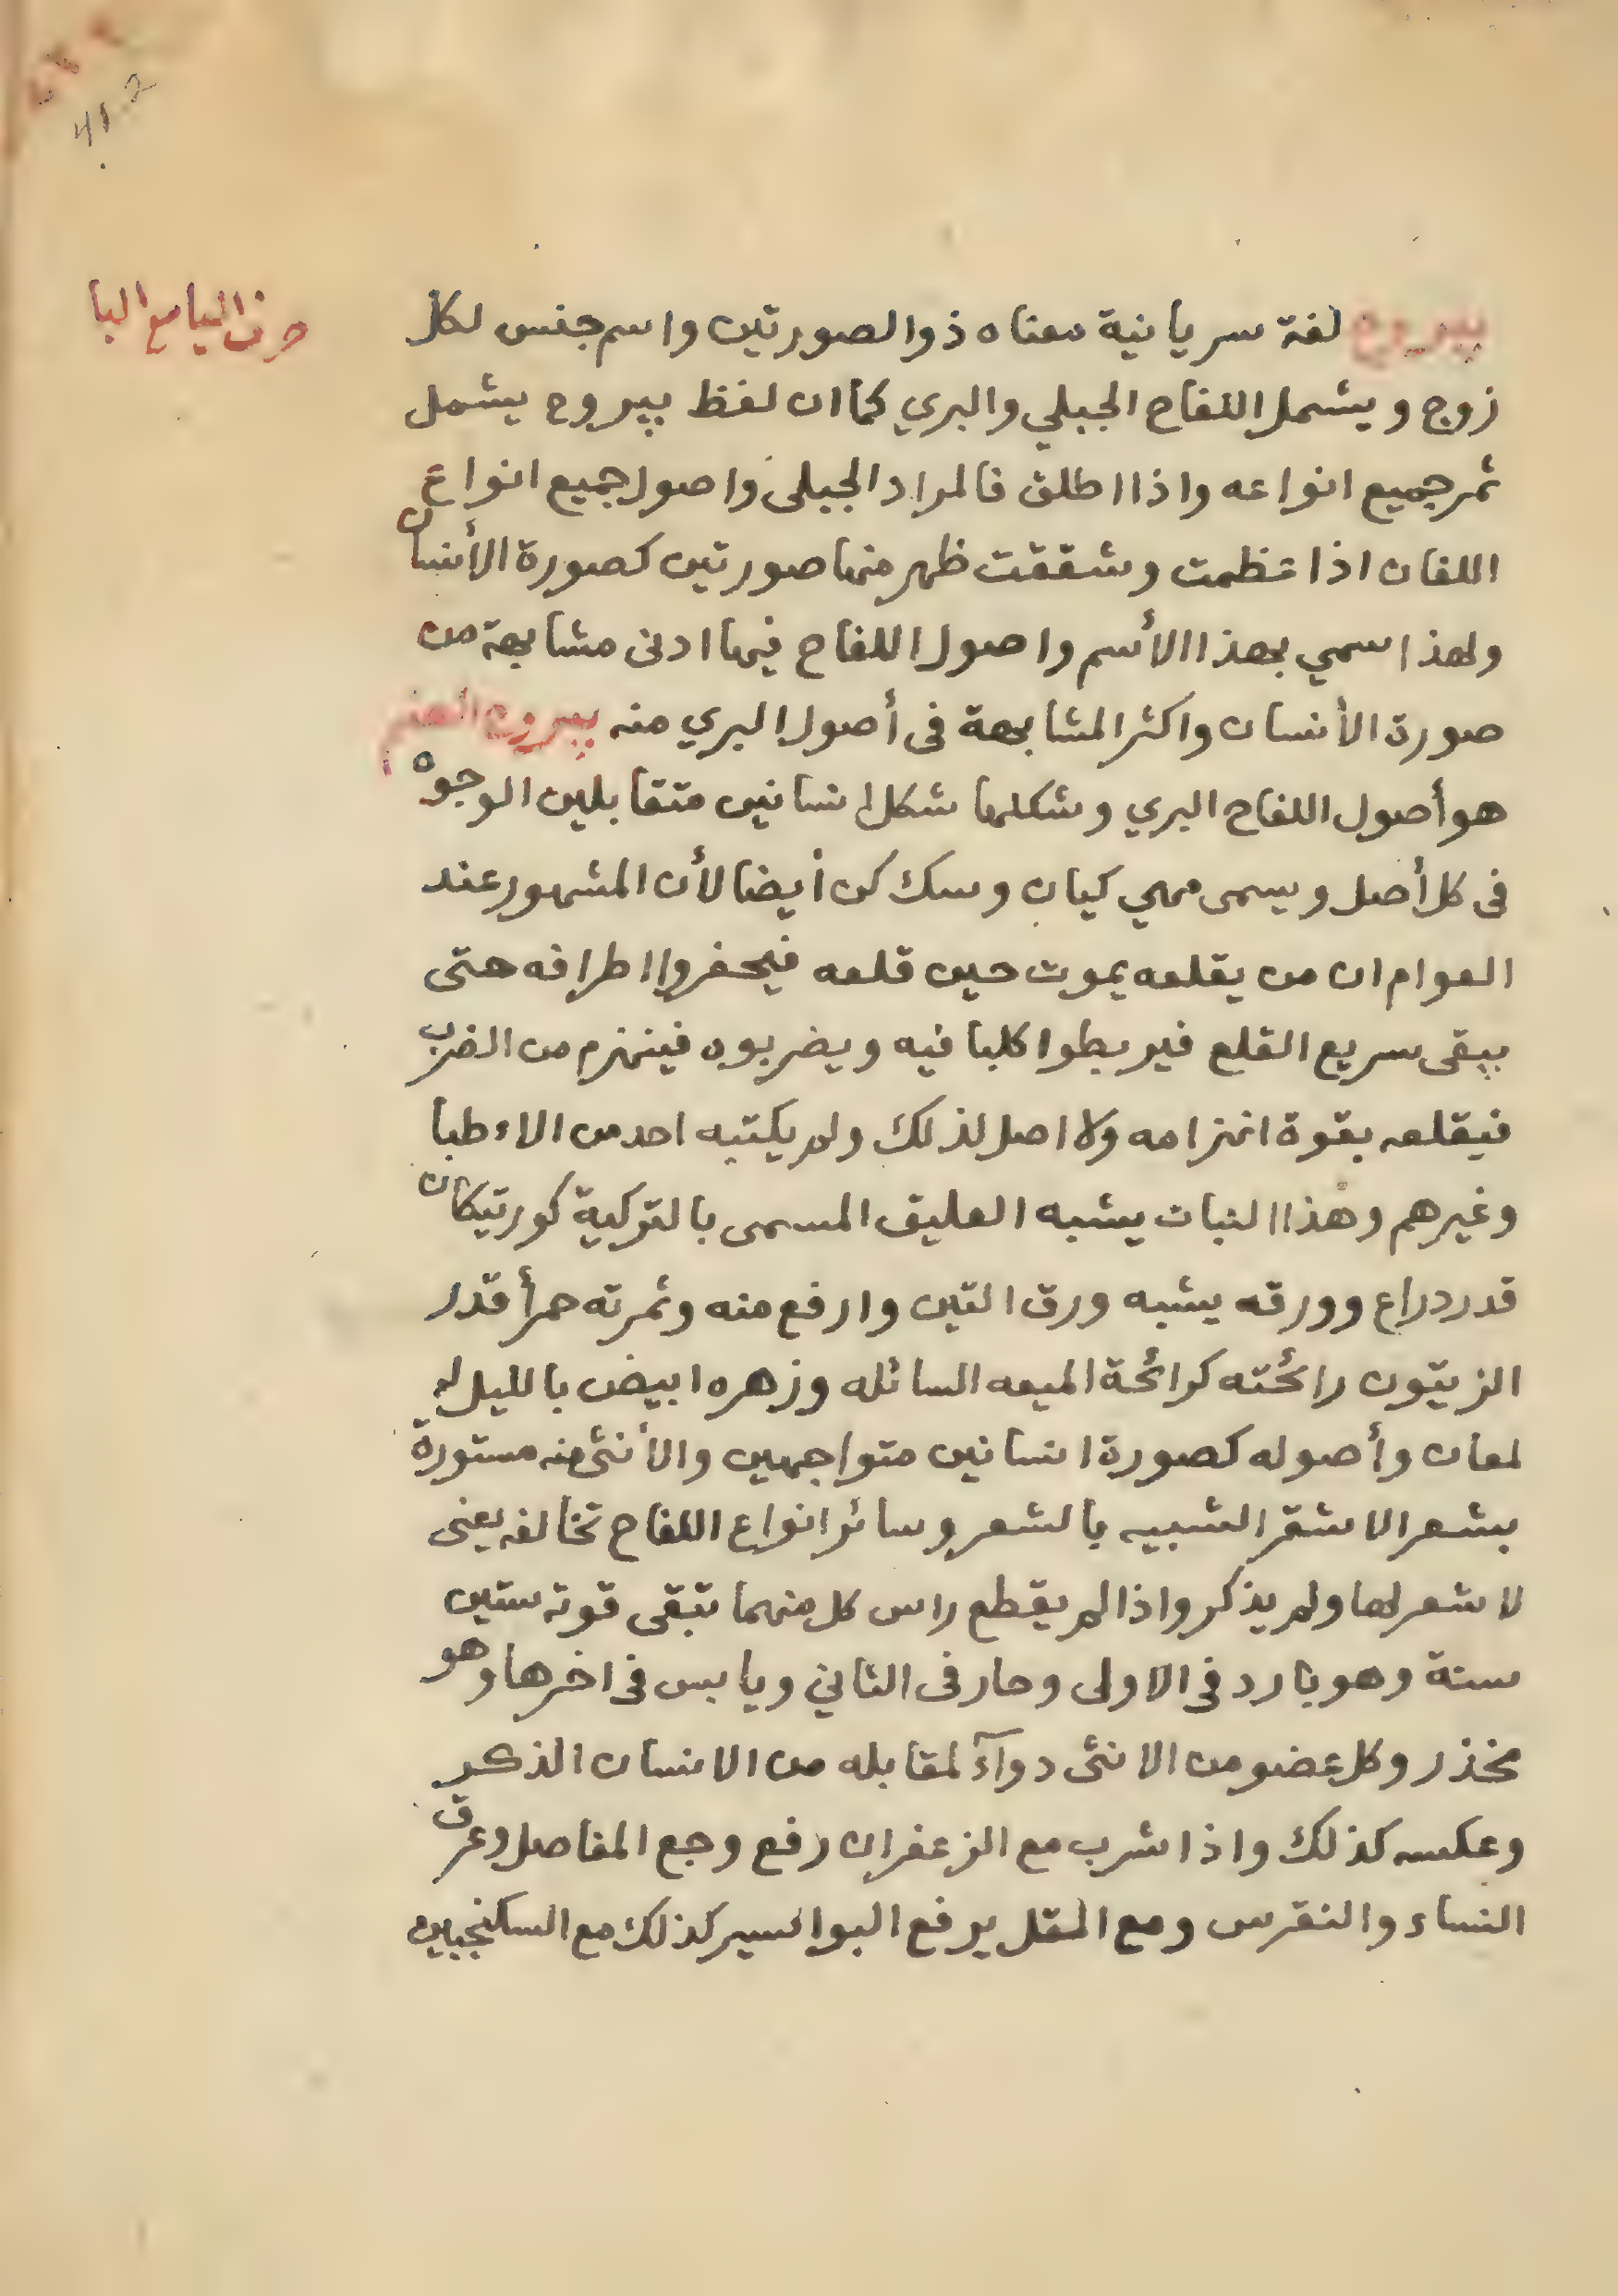 412
حرف اليا مع البا
يبروح لغة سريانية معناه ذو الصورتين واسم جنس لكل
زوج ويشمل اللفاح الجبلي والبري كما ان لفظ يبروح يشمل
ثمر جميع انواعه واذا اطلق فالمراد الجبلى واصول جميع انواع
اللفان اذا عظمت وشققت ظهر منها صورتين كصورة الأنسان
ولهذا سمي بهذا الأسم واصول اللفاح فيها ادنى مشابهة من
صورة الأنسان واكثر المشابهة فى أصول البري منه يبروح الصنم
هو أصول اللفاح البري وشكلها شكل انسانين متقابلين الوجوه
فى كل أصل ويسمى مهي كيان وسك كن أيضا لأن المشهور عند
العوام ان من يقلعه يموت حين قلعه فيحفروا اطرافه حتى
يبقى سريع القلع فيربطوا كلبا فيه ويضربوه فينهزم من الضرب
فيقلعه بقوة انهزامه ولا اصل لذلك ولم يكتبه احد من الاءطبا
وغيرهم وهذا النبات يشبه العليق المسمى بالتركية كورتيكان
قدر دراع وورقه يشبه ورق التين وارفع منه وثمرته حمرأ قدر
الزيتون رائحته كرائحة الميعه السائله وزهره ابيض بالليل له
لمعان وأصوله كصورة انسانين متواجهين والأنثى منه مستورة
بشعر الاشقر الشبيه بالشعر وسائر انواع اللفاح تخالفه يعنى
لا شعر لها ولم يذكر واذا لم يقطع راس كل منهما تبقى قوته ستين
سنة وهو بارد فى الاولى وحار فى الثاني ويابس فى اخرها وهو
مخذر وكل عضو من الانثى دوآء لمقابله من الانسان الذكر
وعكسه كذلك واذا شرب مع الزعفران رفع وجع المفاصل وعرق
النساء والنقرس ومع المقل يرفع البواسير كذلك مع السكنجبين